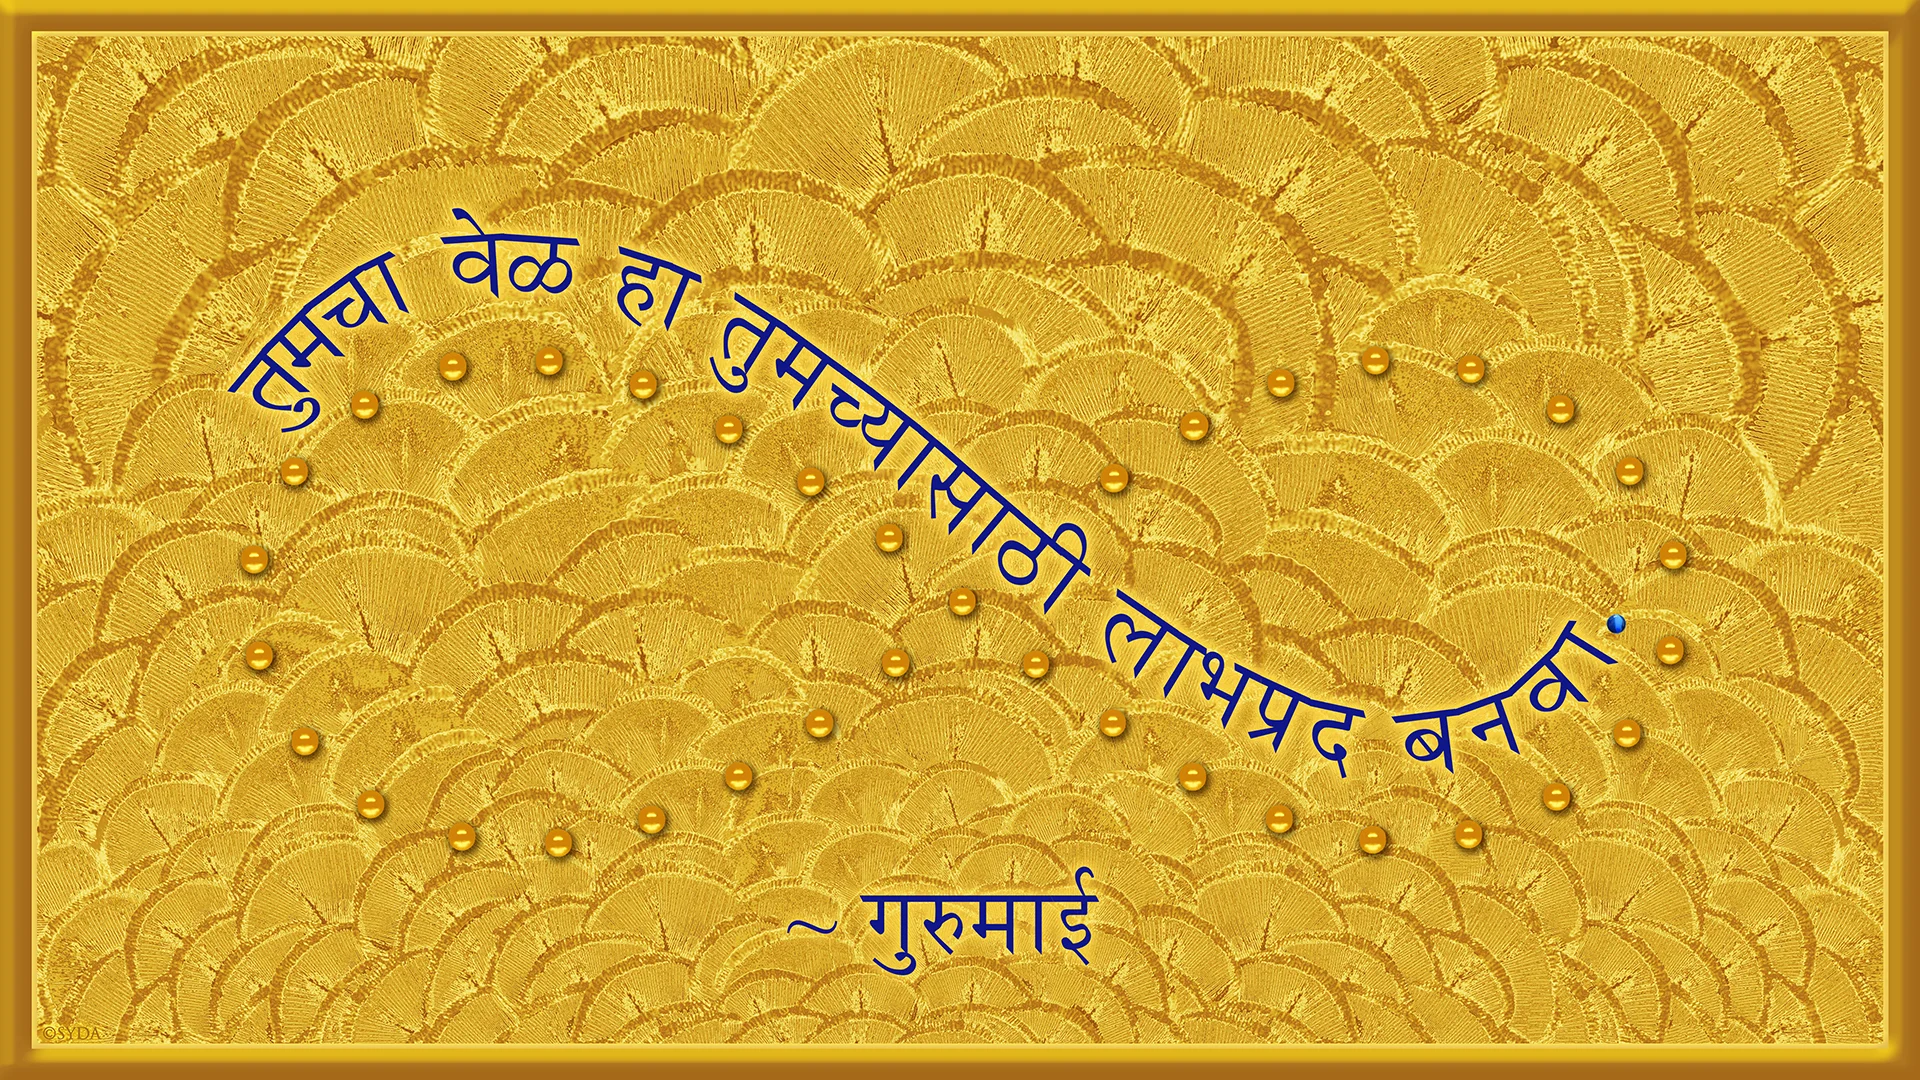 तुमचा वेळ हा तुमच्यासाठी लाभप्रद बनवा.
~ गुरुमाई
©SYDA